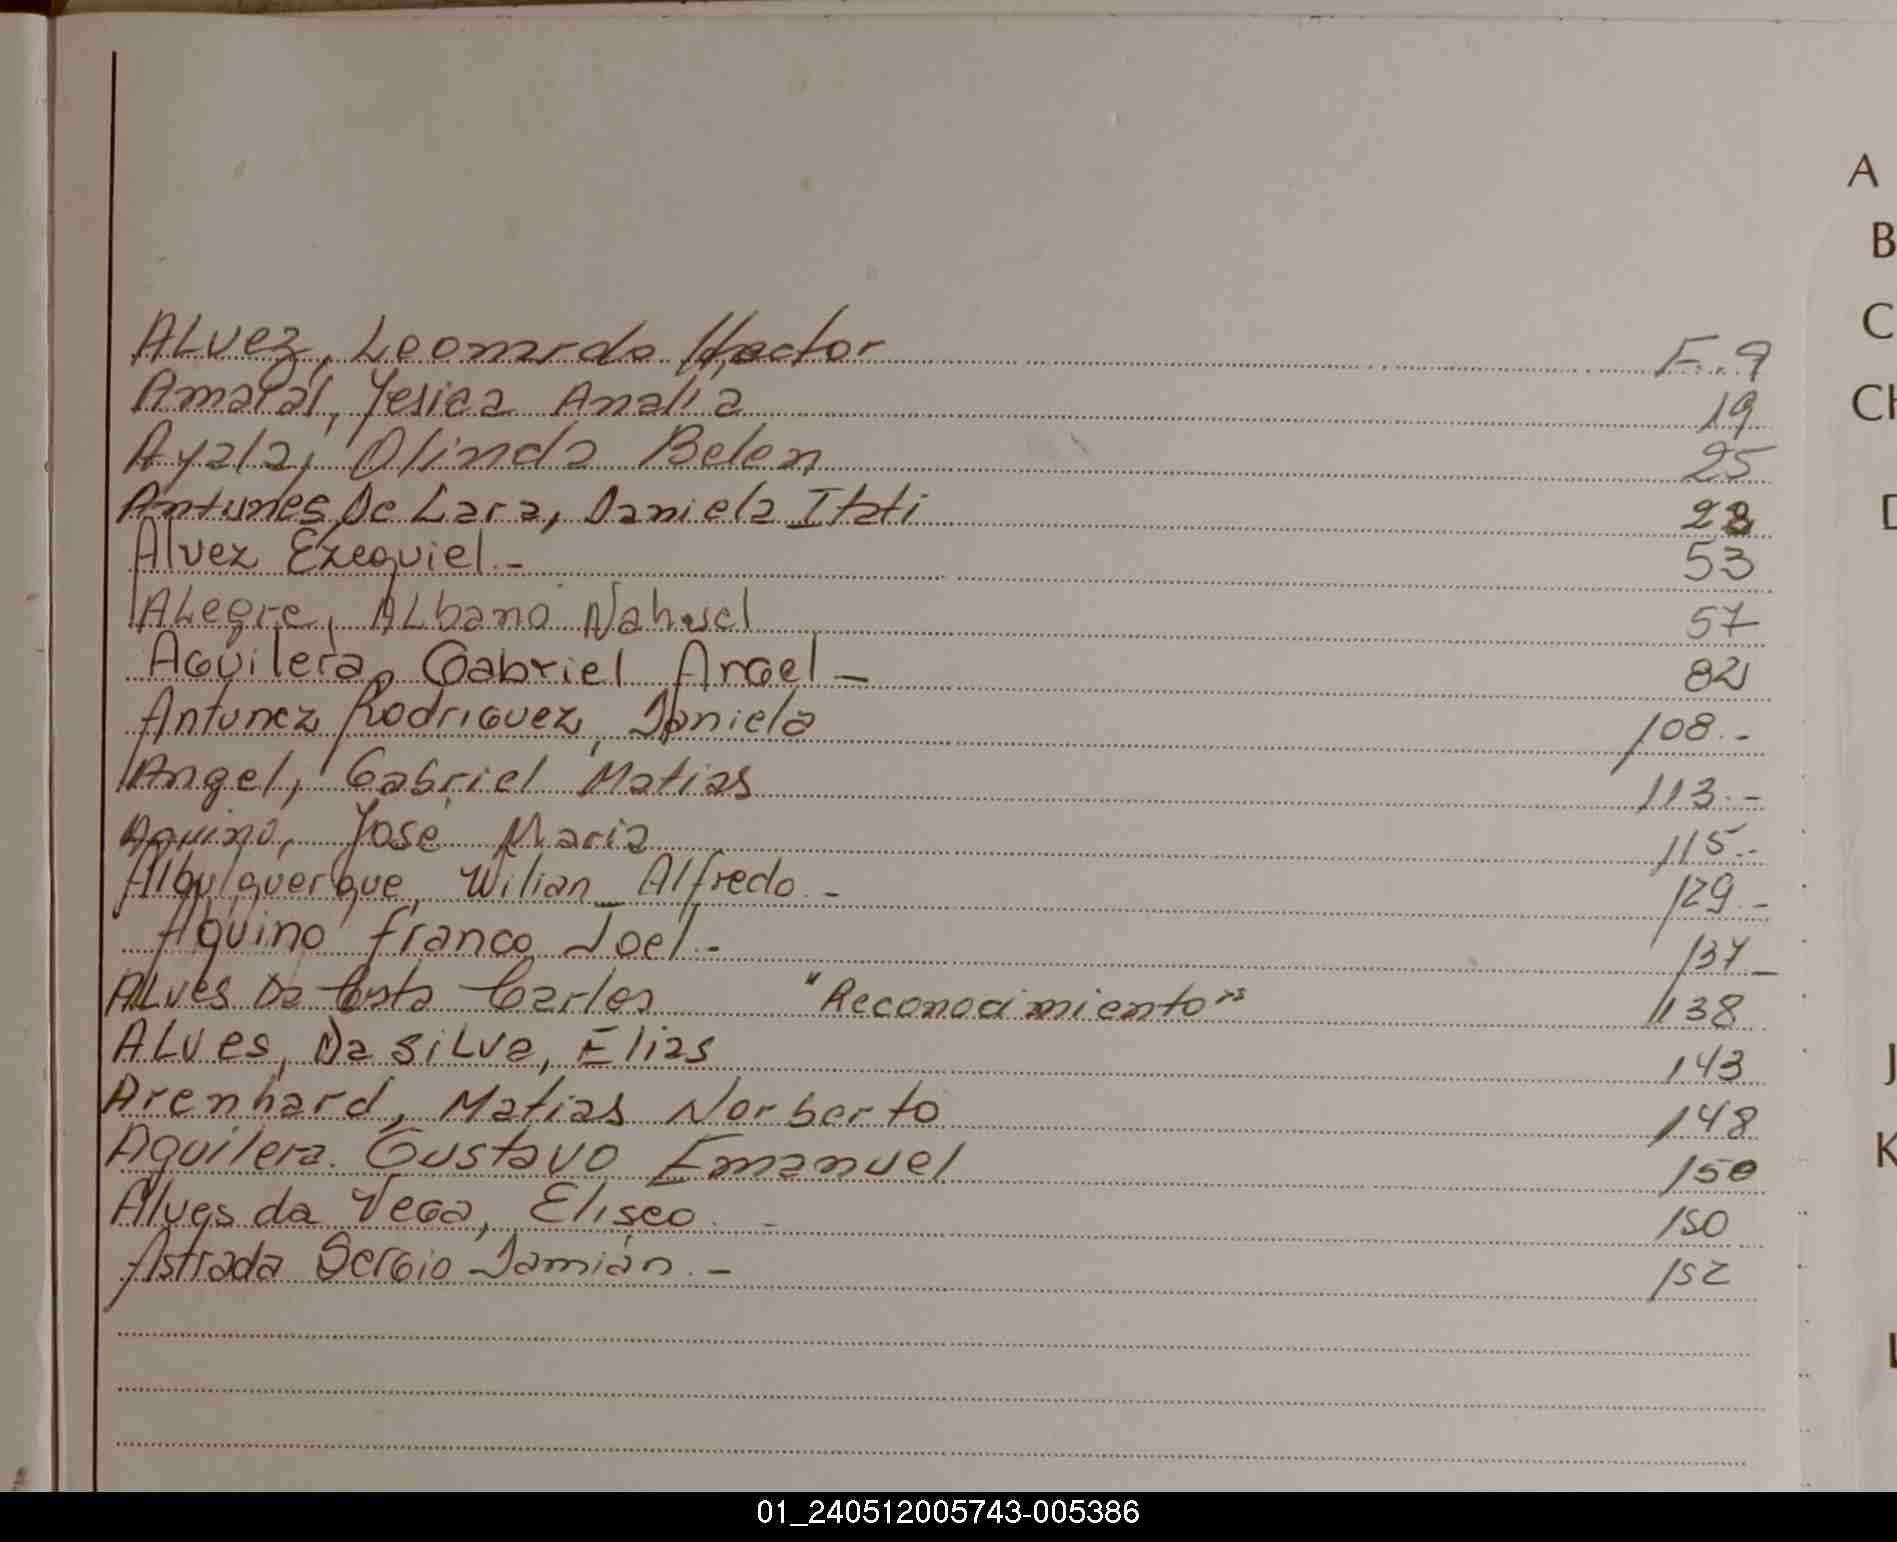 ALvez, Leonardo Hector F. 9
Amaral, Yesica Analia 19
Ayala, Olinda Belen 25
Antunes De Lara, Daniela Itati 28
Alvez Ezequiel.- 53
ALegre, ALbano Nahuel 57
Aguilera, Gabriel Angel - 82
Antunez Rodriguez, Daniela 108.-
Angel, Gabriel Matias 113.-
Aquino, José Maria 115.-
Albulquerque, Wilian Alfredo.- 129.-
Aquino Franco Joel.- 137-
ALves Da Costa Carlos "Reconocimiento" 138
ALves, Da siLva, Elias 143
Arenhard, Matias Norberto 148
Aguilera. Gustavo Emanuel 150
Alves da Vega, Eliseo. - 150
Astrada Sergio Damián.- 152
A
B
C
J
K
L
01_240512005743-005386